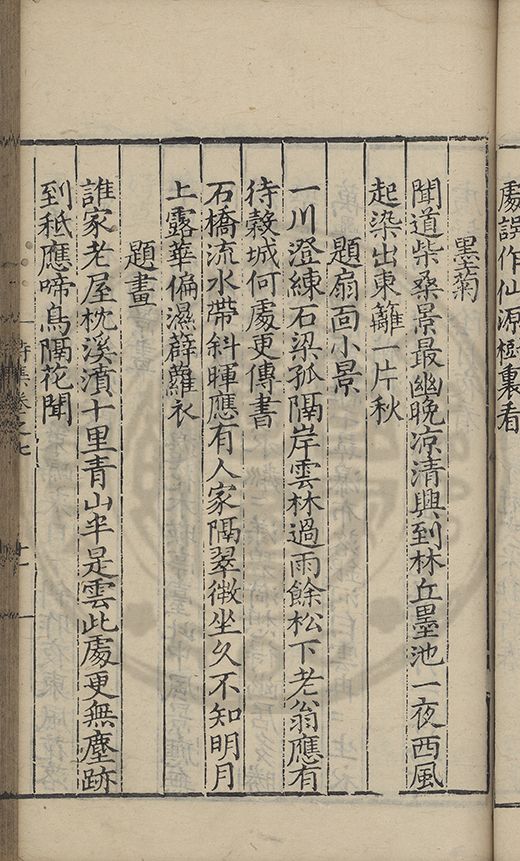 處誤作仙源樹裏看
墨菊
聞道柴桑景最幽晚凉清興到林丘墨池一夜西風
起染出東籬一片秋
題扇面小景
一川澄練石梁孤隔岸雲林過雨餘松下老翁應有
待穀城何處更傳書
石橋流水帶斜暉應有人家隔翠微坐久不知明月
上露華偏濕薜蘿衣
題畫
誰家老屋枕溪濆十里青山半是雲此處更無塵跡
到秪應啼鳥隔花聞
詩集卷之七
十一